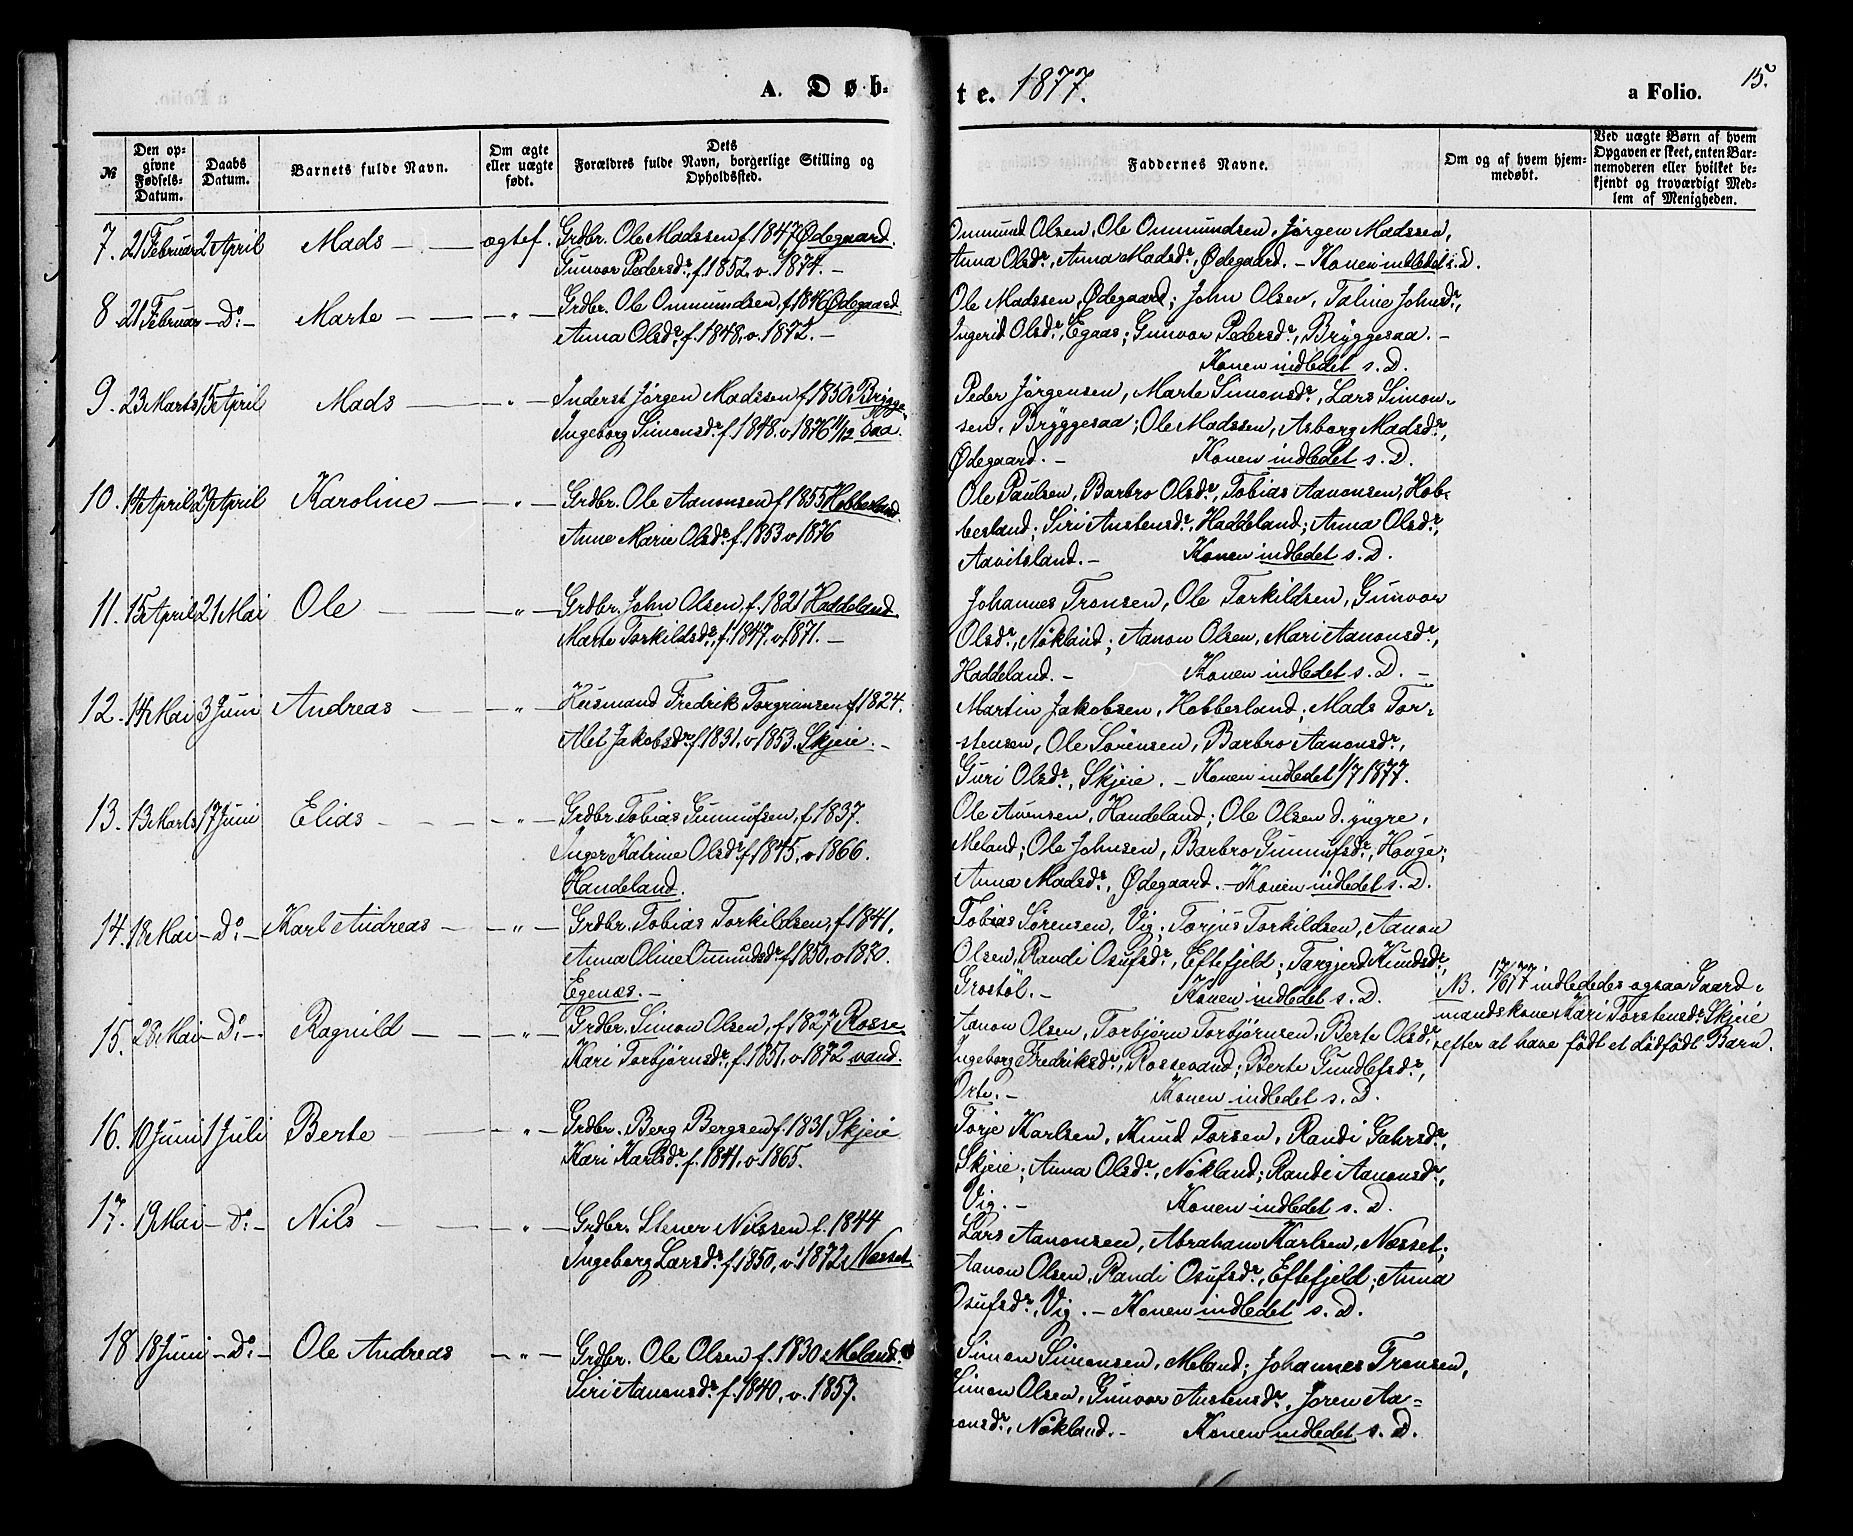 A. Døbte. 1877. a Folio. 15.
№
Den opgivne Fødsels-Datum.
Daabs Datum.
Barnets fulde Navn.
Om ægte eller uægte født.
Dets Forældres fulde Navn, borgerlige Stilling og Opholdssted.
Faddernes Navne.
Om og af hvem hjemmedøbt.
Ved uægte Børn af hvem Opgaven er skeet, enten Barnemoderen eller hvilket bekjendt og troværdigt Medlem af Menigheden.
7. 21 Februar 2 April Mads — ægtef. Grdbr. Ole Madssen f. 1847, Ødegaard.
Gunvor Pedersdr, f. 1852, v. 1874. —
Onmund Olsen, Ole Onmundsen, Jørgen Madssen,
Anna Olsdr, Anna Madsdr, Ødegaard. — Konen indledet s. D.
8 21 Februar — Do — Marte — " — Grdbr. Ole Onmundsen, f. 1846 Ødegaard.
Anna Olsdr, f. 1848, v. 1872. —
Ole Madssen, Ødegaard; John Olsen, Taline Johnsdr,
Ingerid Olsdr, Egaas; Gunvor Pedersdr, Bryggesaa. —
Konen indledet s. D.
9. 23 Marts 15 April Mads — " — Inderst Jørgen Madssen f. 1850 Brygge-
Ingeborg Simonsdr f. 1848. v. 1876 11/12 saa.
Peder Jørgensen, Marte Simonsdr, Lars Simon-
sen, Bryggesaa; Ole Madssen, Asborg Madsdr,
Ødegaard. — Konen indledet s. D.
10. 14 April 29 April Karoline — " — Grdbr. Ole Aanonsen f. 1855 Hobbesland.
Anne Marie Olsdr f. 1853 v. 1876
Ole Paulsen, Barbro Olsdr, Tobias Aanonsen, Hob-
besland; Siri Austensdr, Haddeland; Anna Olsdr,
Aavitsland. — Konen indledet s. D.
11. 15 April 21 Mai Ole — " — Grdbr. John Olsen, f. 1821 Haddeland
Marte Torkildsdr, f. 1847. v. 1871. —
Johannes Tronsen, Ole Torkildsen, Gunvor
Olsdr, Nökland; Aanon Olsen, Mari Aanonsdr,
Haddeland. — Konen indledet s. D. —
12. 14 Mai 3 Juni Andreas — " — Husmand Fredrik Torgrimsen f. 1824.
Alet Jakobsdr f. 1831, v. 1853. Skjeie. —
Martin Jakobsen, Hobbesland; Mads Tor-
stensen, Ole Sørensen, Barbro Aanonsdr,
Guri Olsdr, Skjeie. — Konen indledet 1/7 1877.
13. 13 Marts 17 Juni Elias — " — Grdbr. Tobias Gunnufsen, f. 1837.
Inger Katrine Olsdr f. 1845, v. 1866.
Handeland.
Ole Avensen, Handeland; Ole Olsen d. yngre,
Meland; Ole Johnsen, Barbro Gunnufsdr, Houge;
Anna Madsdr, Ødegaard. — Konen indledet s. D.
14. 18 Mai — Do — Karl Andreas — " — Grdbr. Tobias Torkildsen, f. 1841.
Anna Oline Onmundsdr f. 1850, v. 1870.
Egenæs. —
Tobias Sørensen, Vig; Torjus Torkildsen, Aanon
Olsen, Randi Osufsdr, Eftefjeld; Targjerd Knudsdr,
Grostöl. — Konen indledet s. D.
NB. 17/6 77 indlededes ogsaa Gaard-
mandskonen Kari Torstensdr Skjeie
efter at have født et dödfödt Barn.
15. 28 Mai — Do — Ragnild — " — Grdbr. Simon Olsen, f. 1827 Rosse-
Kari Torbjørnsdr, f. 1851, v. 1872 vand.
Aanon Olsen, Torbjørn Torbjørnsen, Berte Olsdr,
Ingeborg Fredriksdr, Rossevand; Berte Gundlefsdr,
Orte. — Konen indledet s. D.
16. 10 Juni 1 Juli Berte — " — Grdbr. Berg Bergsen f. 1831 Skjeie
Kari Karlsdr. f. 1841, v. 1865.
Torje Karlsen, Knud Torsen, Randi Gahrsdr,
Skjeie; Anna Olsdr, Nökland; Randi Aanonsdr,
Vig. — Konen indledet s. D.
17. 19 Mai — Do — Nils — " — Grdbr. Stener Nilssen f. 1844
Ingeborg Larsdr f. 1850, v. 1872. Næsset
Lars Aanonsen, Abraham Karlsen, Næsset;
Aanon Olsen, Randi Osufsdr, Eftefjeld; Anna
Osufsdr, Vig. — Konen indledet s. D.
18 18 Juni — Do — Ole Andreas — " — Grdbr. Ole Olsen f. 1830 Meland.
Siri Aanonsdr, f. 1840, v. 1857.
Simon Simonsen, Meland; Johannes Tronsen,
Simon Olsen, Gunvor Austensdr, Joren Aa-
nonsdr, Nökland. — Konen indledet s. D.